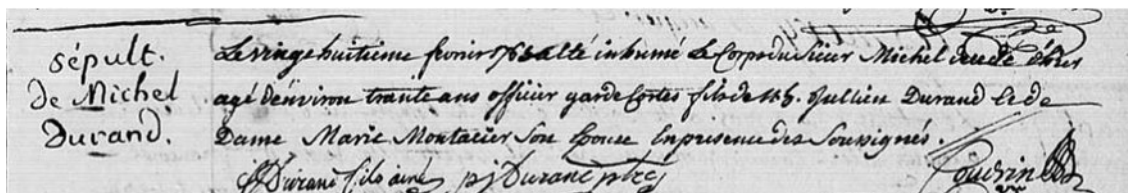 sépult.
de Michel
Durand.
Le vingt huitieme fevrier 1765 a été inhumé Le Corps du Sieur Michel
agé d'environ trante ans officier garde Cortes fils de Mh. Jullien Durand et de
Dame Marie Montacier Son Epouse En presence des Soussignés.
Durand fils ainé pj Durand ptre